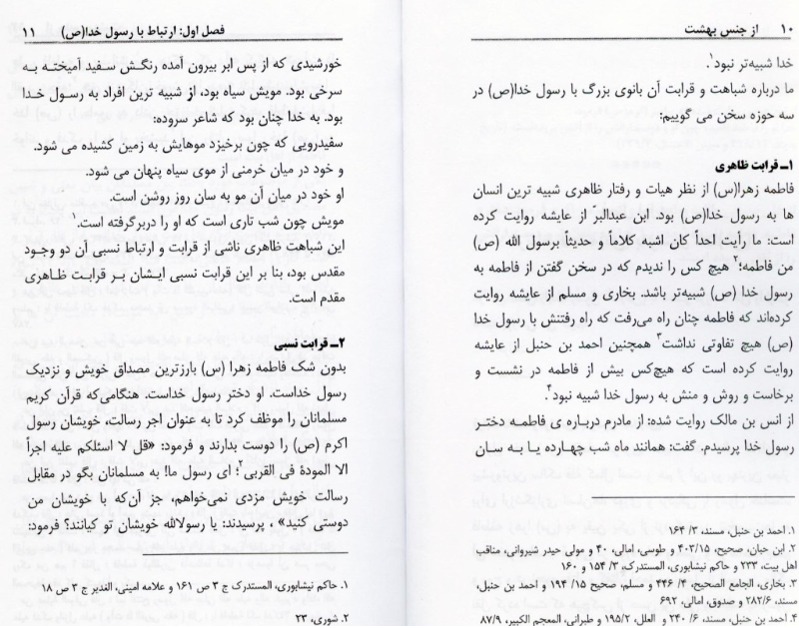 ۱۰ از جنس بهشت
خدا شبیه‌تر نبود۱.
ما درباره شباهت و قرابت آن بانوی بزرگ با رسول خدا(ص) در
سه حوزه سخن می گوییم:
۱ــ قرابت ظاهری
فاطمه زهرا(س) از نظر هیات و رفتار ظاهری شبیه ترین انسان
ها به رسول خدا(ص) بود. ابن عبدالبرّ از عایشه روایت کرده
است: ما رأیت احداً کان اشبه کلاماً و حدیثاً برسول الله (ص)
من فاطمه؛۲ هیچ کس را ندیدم که در سخن گفتن از فاطمه به
رسول خدا (ص) شبیه‌تر باشد. بخاری و مسلم از عایشه روایت
کرده‌اند که فاطمه چنان راه می‌رفت که راه رفتنش با رسول خدا
(ص) هیچ تفاوتی نداشت۳ همچنین احمد بن حنبل از عایشه
روایت کرده است که هیچ‌کس بیش از فاطمه در نشست و
برخاست و روش و منش به رسول خدا شبیه نبود۴.
از انس بن مالک روایت شده: از مادرم درباره ی فاطمه دختر
رسول خدا پرسیدم. گفت: همانند ماه شب چهارده یا به سان
۱. احمد بن حنبل، مسند، ۳/ ۱۶۴
۲. ابن حبان، صحیح، ۴۰۳/۱۵ و طوسی، امالی، ۴۰ و مولی حیدر شیروانی، مناقب
اهل بیت، ۲۳۳ و حاکم نیشابوری، المستدرک، ۳/ ۱۵۴ و ۱۶۰
۳. بخاری، الجامع الصحیح، ۴/ ۴۴۶ و مسلم، صحیح ۱۵/ ۱۹۴ و احمد بن حنبل،
مسند، ۲۸۲/۶ و صدوق، امالی، ۶۹۲
۴. احمد بن حنبل، مسند، ۶/ ۲۴۰ و العلل، ۱۹۵/۲ و طبرانی، المعجم الکبیر، ۸۷/۹
فصل اول: ارتباط با رسول خدا(ص) ۱۱
خورشیدی که از پس ابر بیرون آمده رنگش سفید آمیخته به
سرخی بود. مویش سیاه بود، از شبیه ترین افراد به رسول خدا
بود. به خدا چنان بود که شاعر سروده:
سفیدرویی که چون برخیزد موهایش به زمین کشیده می شود.
و خود در میان خرمنی از موی سیاه پنهان می شود.
او خود در میان آن مو به سان روز روشن است.
مویش چون شب تاری است که او را دربرگرفته است.۱
این شباهت ظاهری ناشی از قرابت و ارتباط نسبی آن دو وجود
مقدس بود، بنا بر این قرابت نسبی ایشان بر قرابت ظاهری
مقدم است.
۲ــ قرابت نسبی
بدون شک فاطمه زهرا (س) بارزترین مصداق خویش و نزدیک
رسول خداست. او دختر رسول خداست. هنگامی‌که قرآن کریم
مسلمانان را موظف کرد تا به عنوان اجر رسالت، خویشان رسول
اکرم (ص) را دوست بدارند و فرمود: «قل لا اسئلکم علیه اجراً
الا المودة فی القربی۲؛ ای رسول ما! به مسلمانان بگو در مقابل
رسالت خویش مزدی نمی‌خواهم، جز آن‌که با خویشان من
دوستی کنید» ، پرسیدند: یا رسول‌الله خویشان تو کیانند؟ فرمود:
۱. حاکم نیشابوری، المستدرک ج ۳ ص ۱۶۱ و علامه امینی، الغدیر ج ۳ ص ۱۸
۲. شوری، ۲۳